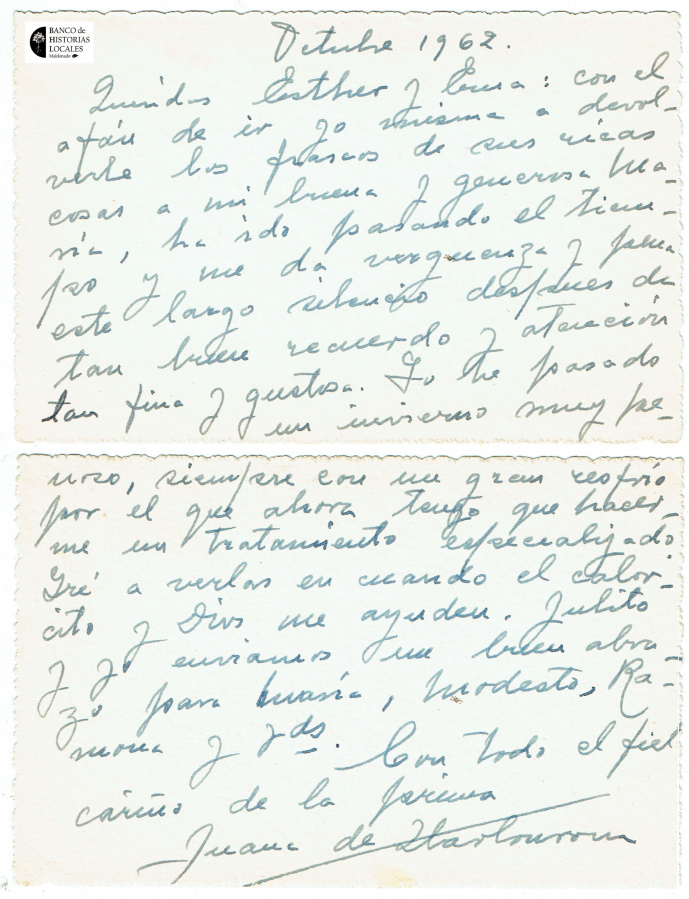 BANCO de
HISTORIAS
LOCALES
Maldonado
Octubre 1962.
Queridas Esther y Ema: con el
afán de ir yo misma a devol-
verle los frascos de sus ricas
cosas a mi buena y generosa Ma-
ría, ha ido pasando el tiem-
po y me da vergüenza y pena
este largo silencio después de
tan buen recuerdo y atención
tan fina y gustosa. Yo he pasado
un invierno muy pe-
noso, siempre con un gran resfrío
por el que ahora tengo que hacer-
me un tratamiento especializado
Iré a verlas en cuando el calor-
cito y Dios me ayuden. Julito
y yo enviamos un buen abra-
zo para María, Modesto, Ra-
mona y Yds. Con todo el fiel
cariño de la prima
Juana de Ibarbourou